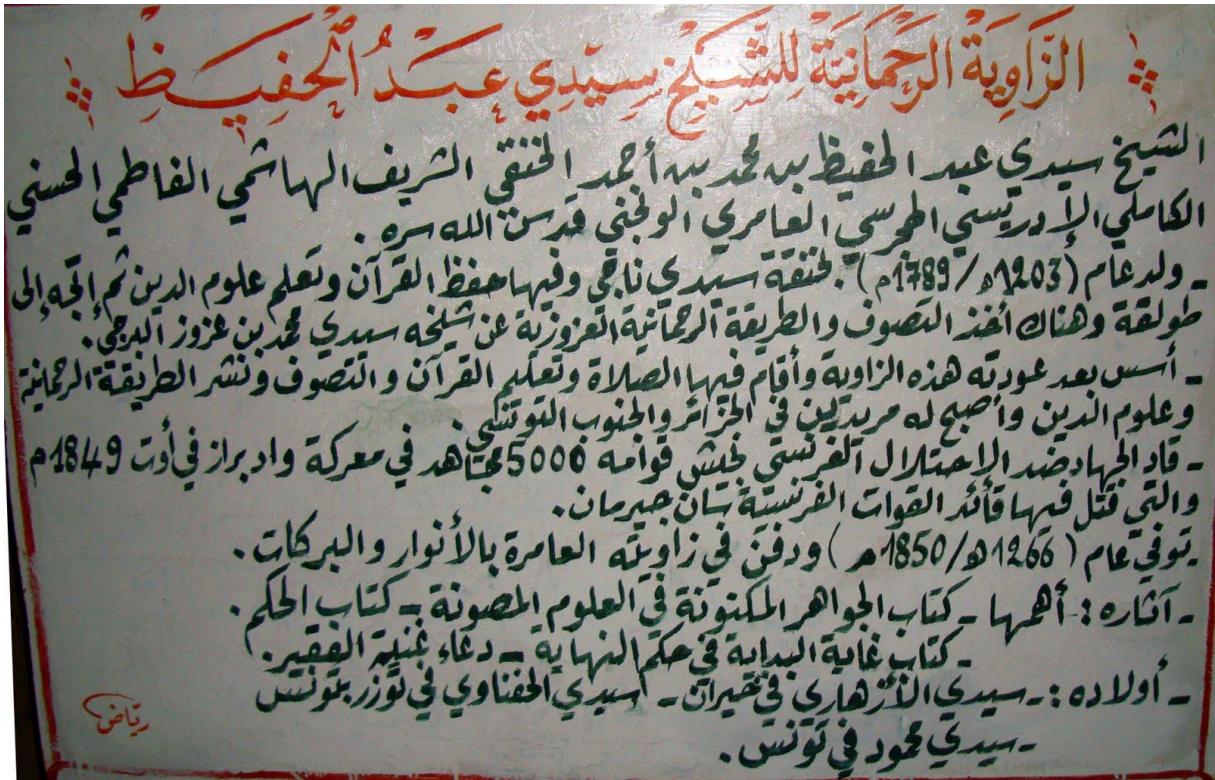 الزَّاوِيَةُ الرَّحْمَانِيَّةُ لِلشَّيْخِ سِيِّدِي عَبْدُ الْحَفِيظِ
الشيخ سيدي عبد الحفيظ بن محمد بن أحمد الخنقي الشريف الهاشمي الفاطمي الحسني
الكاملي الإدريسي الهجرسي العامري الونجني قدس الله سره .
- ولد عام (1203ه/1789م) بخنقة سيدي ناجي وفيها حفظ القرآن وتعلم علوم الدين ثم إتجه إلى
طولقة وهناك أخذ التصوف والطريقة الرحمانية العزوزية عن شيخه سيدي محمد بن عزوز البرجي .
- أسس بعد عودته هذه الزاوية وأقام فيها الصلاة وتعليم القرآن والتصوف ونشر الطريقة الرحمانية
وعلوم الدين وأصبح له مريدين في الجزائر والجنوب التونسي
- قاد الجهاد ضد الإحتلال الفرنسي بجيش قوامه 5000 مجاهد في معركة واد براز في أوت 1849م
والتي قتل فيها قائد القوات الفرنسية سان جيرمان .
- توفي عام (1266ه/1850م) ودفن في زاويته العامرة بالأنوار والبركات .
- آثاره : أهمها - كتاب الجواهر المكنونة في العلوم المصونة - كتاب الحكم .
- كتاب غاية البداية في حكم النهاية - دعاء غنية الفقير .
- أولاده : - سيدي الأزهاري في خيران - سيدي الحفناوي في توزر بتونس
- سيدي محمود في تونس .
رياض